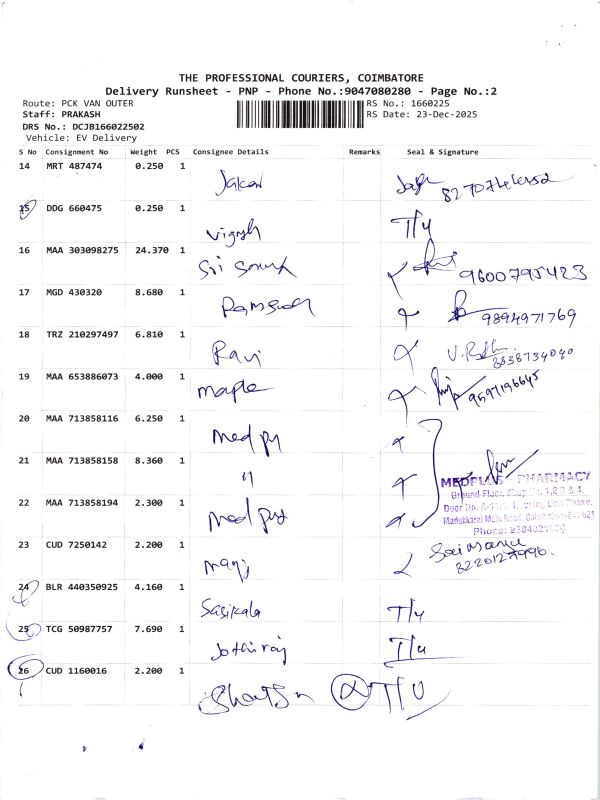 THE PROFESSIONAL COURIERS, COIMBATORE
Delivery Runsheet - PNP - Phone No.:9047080280 - Page No.:2
Route: PCK VAN OUTER RS No.: 1660225
Staff: PRAKASH RS Date: 23-Dec-2025
DRS No.: DCJB166022502
Vehicle: EV Delivery
S No Consignment No Weight PCS Consignee Details Remarks Seal & Signature
14 MRT 487474 0.250 1
15 DDG 660475 0.250 1 T/4
16 MAA 303098275 24.370 1 Sri 9600795423
17 MGD 430320 8.680 1 9894971769
18 TRZ 210297497 6.810 1 Ravi 8838734090
19 MAA 653886073 4.000 1 maple 9597196645
20 MAA 713858116 6.250 1 med py
21 MAA 713858158 8.360 1 "
MEDPLUS PHARMACY
Ground Floor, Shop No. 1,2,3 & 4,
22 MAA 713858194 2.300 1 med
Phone:
23 CUD 7250142 2.200 1 8220127996
24 BLR 440350925 4.160 1 Sasikala T/4
25 TCG 50987757 7.690 1 Jothiraj T/4
26 CUD 1160016 2.200 1 T/U